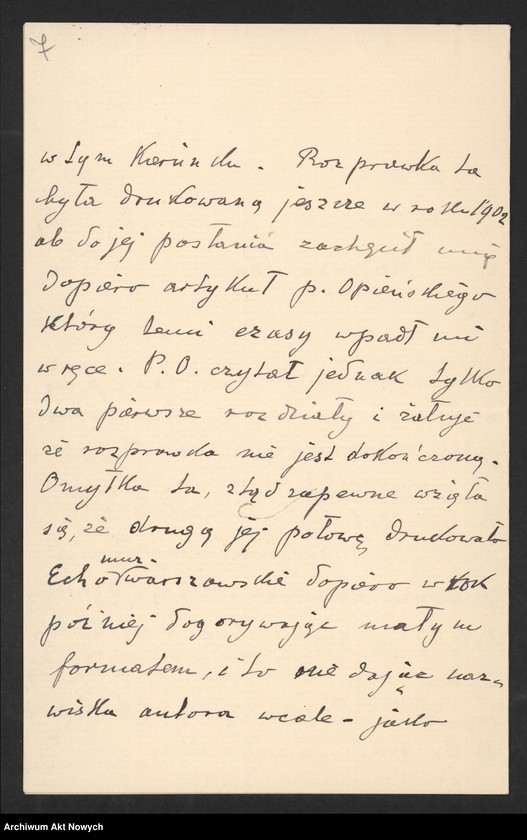 7
w tym kierunku. Rozprawka ta
była drukowaną jeszcze w roku 1902
ale do jej posłania zachęcił mię
dopiero artykuł p. Opieńskiego
który temi czasy wpadł mi
w ręce. P. O. czytał jednak tylko
dwa pierwsze rozdziały i żałuje
że rozprawka nie jest dokończoną.
Omyłka ta, ztąd zapewne wzięła
się, że drugą jej połowę drukowało
muz.
Echo warszawskie dopiero w rok
później dogorywając małym
formatem, i to nie dając naz-
wiska autora wcale - jako
Archiwum Akt Nowych